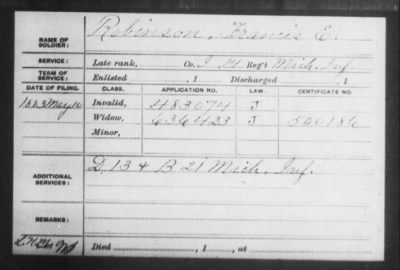 NAME OF SOLDIER: Robinson, Francis E.
SERVICE: Late rank, Co. I, 14 Reg't Mich. Inf.
TERM OF SERVICE: Enlisted , 1 Discharged , 1
DATE OF FILING. CLASS. APPLICATION NO. LAW. CERTIFICATE NO.
1883 May 14 Invalid, 483074 J
Widow, 636423 J 500186
Minor,
ADDITIONAL SERVICES: D 13 & B 21 Mich. Inf.
REMARKS:
Died , 1 , at